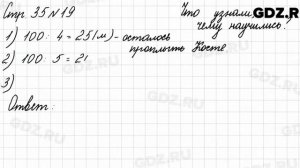 Стр 35 N19
Что узнали.
чему научились?
GDZ.RU
1) 100 : 4 = 25 (м) - осталось
проплыть Косте
2) 100 : 5 = 2
3)
Ответ: